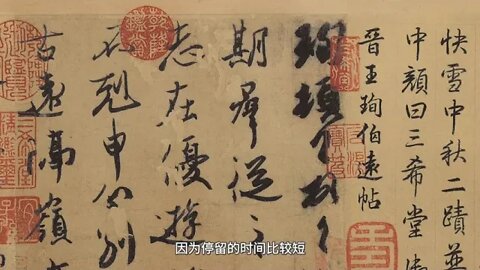 快雪中秋二蹟並
中顏曰三希堂
晉王珣伯遠帖
珣頓首頓首
期群從之
志在優遊
不剋申分別
古遠隔嶺
因为停留的时间比较短